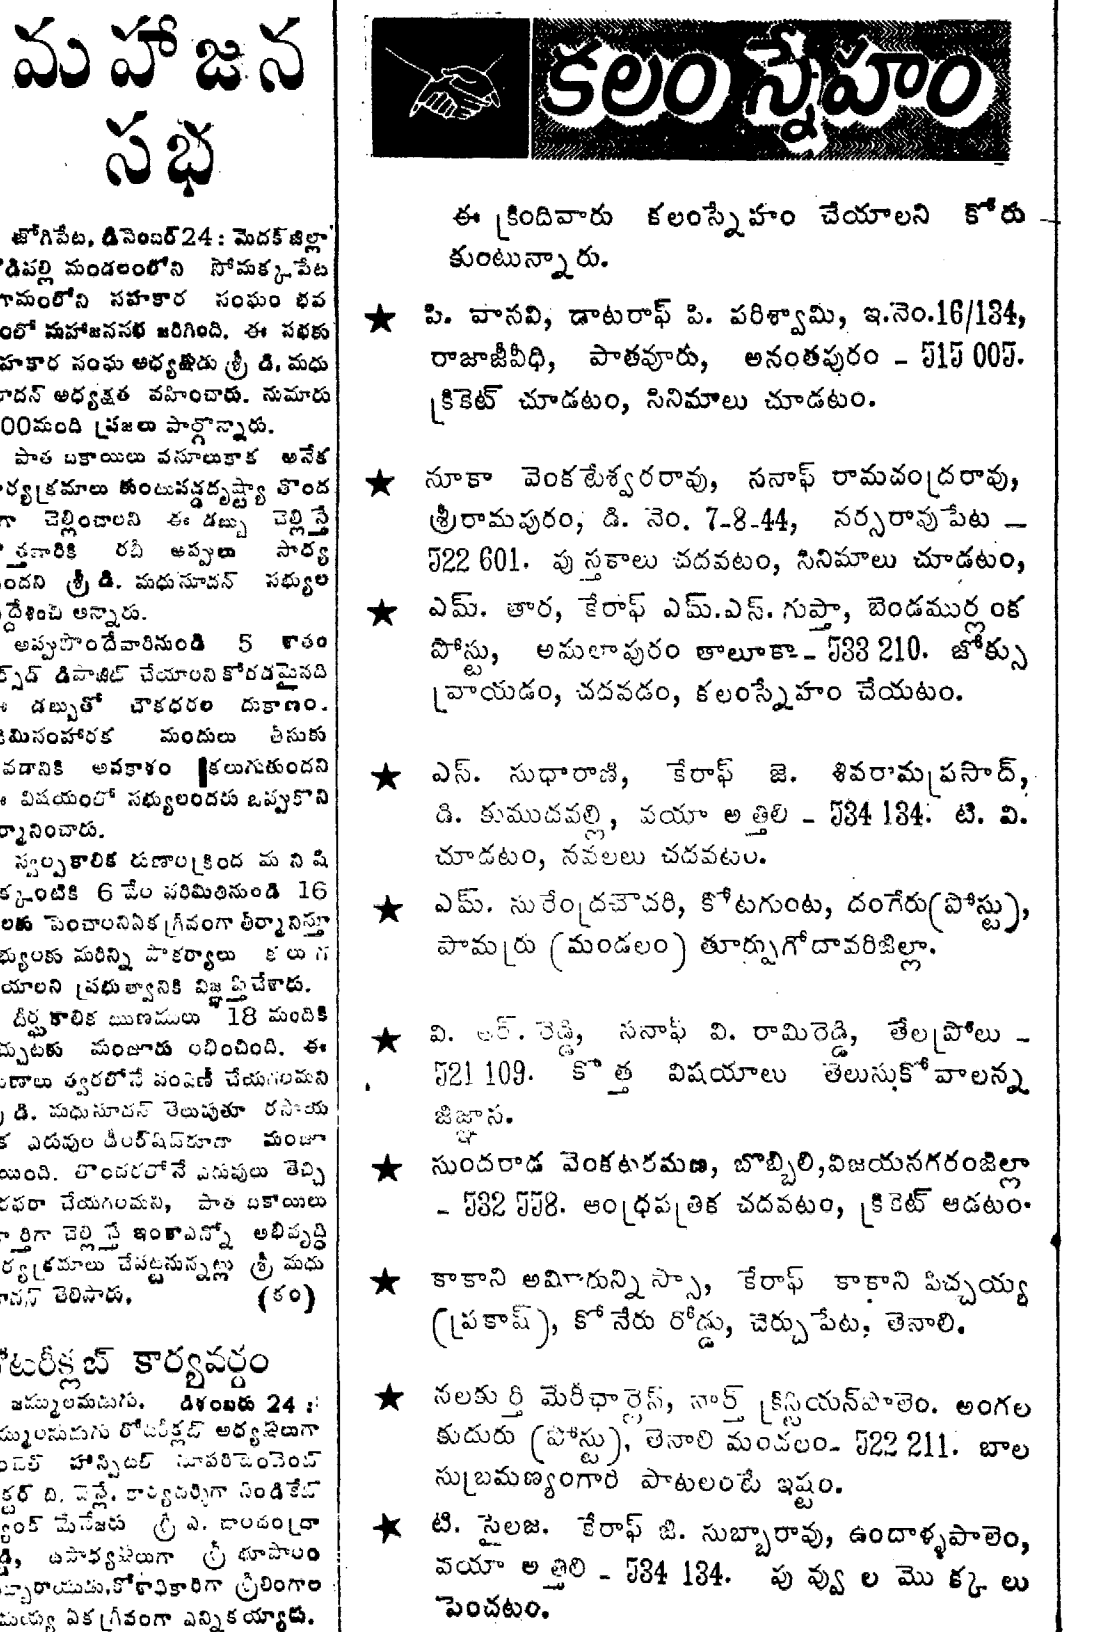 మహాజన
సభ
జోగిపేట, డిసెంబర్ 24 : మెదక్ జిల్లా
మండలంలోని సోమక్కపేట
సహకార సంఘం భవ
మహాజనసభ జరిగింది. ఈ సభకు
సంఘ అధ్యక్షుడు శ్రీ డి. మధు
అధ్యక్షత వహించారు. సుమారు
00మంది ప్రజలు పార్గొన్నారు.
పాత బకాయిలు వసూలుకాక అనేక
కుంటువడ్డదృష్ట్యా తొంద
చెల్లించాలని ఈ డబ్బు చెల్లిస్తే
రబీ అప్పులు సాధ్య
శ్రీ డి. మధుసూదన్ సభ్యుల
అన్నారు.
అప్పుపొందేవారినుండి 5 శాతం
డిపాజిట్ చేయాలని కోరడమైనది
డబ్బుతో చౌకధరల దుకాణం.
మందులు తీసుకు
అవకాశం కలుగుతుందని
విషయంలో సభ్యులందరు ఒప్పుకొని
స్వల్పకాలిక రుణాలక్రింద మనిషి
6 వేల పరిమితినుండి 16
పెంచాలని ఏకగ్రీవంగా తీర్మానిస్తూ
మరిన్ని సౌకర్యాలు కలుగ
ప్రభుత్వానికి విజ్ఞప్తిచేశారు.
దీర్ఘకాలిక ఋణములు 18 మందికి
మంజూరు లభించింది. ఈ
త్వరలోనే పంపిణీ చేయగలమని
డి. మధుసూదన్ తెలుపుతూ రసాయ
ఎరువుల మంజూ
తొందరలోనే ఎరువులు తెచ్చి
చేయగలమని, పాత బకాయిలు
చెల్లిస్తే ఇంకాఎన్నో అభివృద్ధి
చేపట్టనున్నట్లు శ్రీ మధు
తెలిపారు. (కం)
కార్యవర్గం
జమ్మలమడుగు, డిశంబరు 24 :
రోటరీక్లబ్ అధ్యక్షులుగా
హాస్పిటల్ సూపరింటెండెంట్
కార్యదర్శిగా సిండికేట్
మేనేజరు శ్రీ ఎ.
ఉపాధ్యక్షులుగా శ్రీ భూపాలం
కోశాధికారిగా శ్రీలింగాల
ఏకగ్రీవంగా ఎన్నికయ్యారు.
కలం స్నేహం
ఈ క్రిందివారు కలంస్నేహం చేయాలని కోరు
కుంటున్నారు.
★ పి. వాసవి, డాటరాఫ్ పి. పరిశ్వామి, ఇ.నెం.16/134,
రాజాజీవీధి, పాతవూరు, అనంతపురం - 515 005.
క్రికెట్ చూడటం, సినిమాలు చూడటం.
★ నూకా వెంకటేశ్వరరావు, సనాఫ్ రామచంద్రరావు,
శ్రీరామపురం, డి. నెం. 7-8-44, నర్సరావుపేట –
522 601. పుస్తకాలు చదవటం, సినిమాలు చూడటం,
★ ఎమ్. తార, కేరాఫ్ ఎమ్.ఎస్. గుప్తా, బెండమూర్లంక
పోస్టు, అమలాపురం తాలూకా - 533 210. జోక్సు
వ్రాయడం, చదవడం, కలంస్నేహం చేయటం.
★ ఎస్. సుధారాణి, కేరాఫ్ జె. శివరామప్రసాద్,
డి. కుముదవల్లి, వయా అత్తిలి - 534 134. టి. వి.
చూడటం, నవలలు చదవటం.
★ ఎమ్. సురేంద్రచౌదరి, కోటగుంట, దంగేరు(పోస్టు),
పామర్రు (మండలం) తూర్పుగోదావరిజిల్లా.
★ వి. ఆర్. రెడ్డి, సనాఫ్ వి. రామిరెడ్డి, తేలప్రోలు -
521 109. కొత్త విషయాలు తెలుసుకోవాలన్న
జిజ్ఞాస.
★ సుందరాడ వెంకటరమణ, బొబ్బిలి,విజయనగరంజిల్లా
- 532 558. ఆంధ్రపత్రిక చదవటం, క్రికెట్ ఆడటం.
★ కాకాని అమీరున్నిస్సా, కేరాఫ్ కాకాని పిచ్చయ్య
(ప్రకాష్), కోనేరు రోడ్డు, చెర్చుపేట, తెనాలి.
★ నలకుర్తి మేరీఛార్లెస్, నార్త్ క్రిస్టియన్‌పాలెం. అంగల
కుదురు (పోస్టు), తెనాలి మండలం- 522 211. బాల
సుబ్రమణ్యంగారి పాటలంటే ఇష్టం.
★ టి. సైలజ. కేరాఫ్ జి. సుబ్బారావు, ఉందాళ్ళపాలెం,
వయా అత్తిలి - 534 134. పువ్వుల మొక్కలు
పెంచటం.